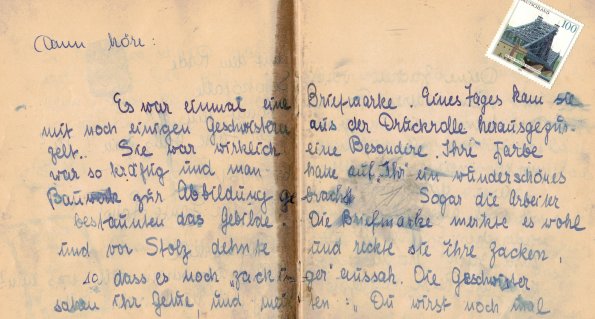 Dann höre:
DEUTSCHLAND 100
Es war einmal eine Briefmarke. Eines Tages kam sie
mit noch einigen Geschwistern aus der Druckrolle herausgepur-
zelt. Sie war wirklich eine Besondere. „Ihre" Farbe
war so kräftig und man hatte auf „Ihr" ein wunderschönes
Bauwerk zur Abbildung gebracht. Sogar die Arbeiter
bestaunten das Gebilde. Die Briefmarke merkte es wohl
und vor Stolz dehnte und reckte sie ihre Zacken,
so dass es noch „zackiger" aussah. Die Geschwister
sahen ihr und : „Du wirst noch mal